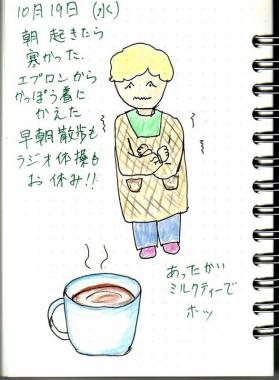 10月19日 (水)
朝 起きたら
寒かった.
エプロンから
かっぽう着に
かえた
早朝散歩も
ラジオ体操も
お休み!!
あったかい
ミルクティーで
ホッ